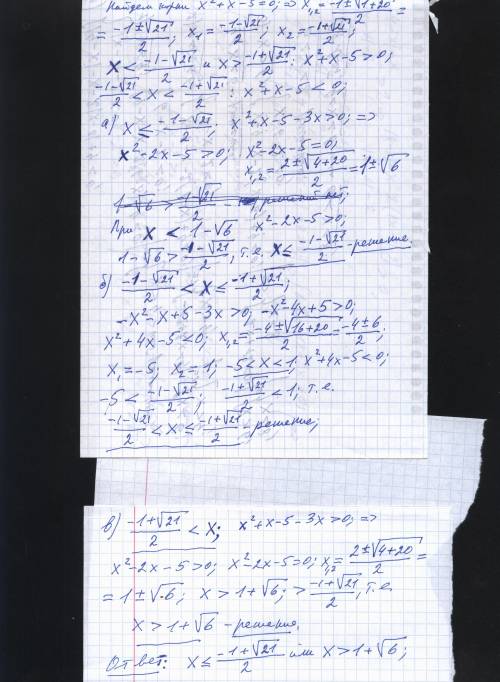 Найдем корни x²+x-5=0; ⇒ x₁,₂ = (-1±√(1+20))/2 =
= (-1±√21)/2; x₁ = (-1-√21)/2, x₂ = (-1+√21)/2;
x < (-1-√21)/2 и x > (-1+√21)/2 : x²+x-5>0;
(-1-√21)/2 < x < (-1+√21)/2 : x²+x-5<0;
а) x ≤ (-1-√21)/2; x²+x-5-3x>0; ⇒
x²-2x-5>0; x²-2x-5=0;
x₁,₂ = (2±√(4+20))/2 = 1±√6
При x < 1-√6 x²-2x-5>0;
1-√6 > (-1-√21)/2, т.е. x ≤ (-1-√21)/2 - решение.
б) (-1-√21)/2 < x ≤ (-1+√21)/2;
-x²-x+5-3x>0; -x²-4x+5>0;
x²+4x-5<0; x₁,₂ = (-4±√(16+20))/2 = (-4±6)/2;
x₁=-5; x₂=1; -5<x<1: x²+4x-5<0;
-5 < (-1-√21)/2; (-1+√21)/2 < 1; т.е.
(-1-√21)/2 < x ≤ (-1+√21)/2 - решение;
в) (-1+√21)/2 < x; x²+x-5-3x>0; ⇒
x²-2x-5>0; x²-2x-5=0; x₁,₂ = (2±√(4+20))/2 =
= 1±√6; x > 1+√6; > (-1+√21)/2, т.е.
x > 1+√6 - решение.
Ответ: x ≤ (-1+√21)/2 или x > 1+√6;